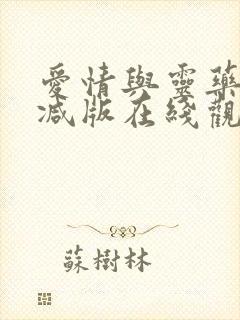 愛情與靈藥
减版在綫觀
蘇樹林